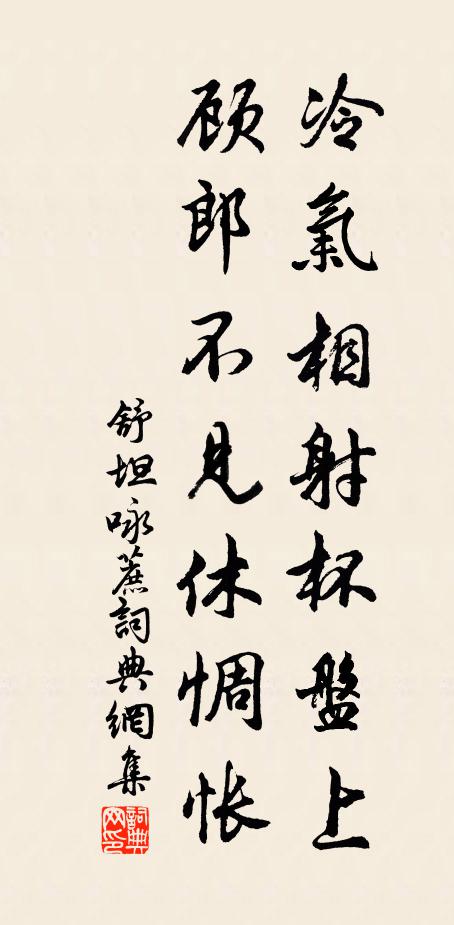 冷氣相射杯盤上
顾郎不見休惆怅
舒坦咏蔗詞典網集
詞典網印